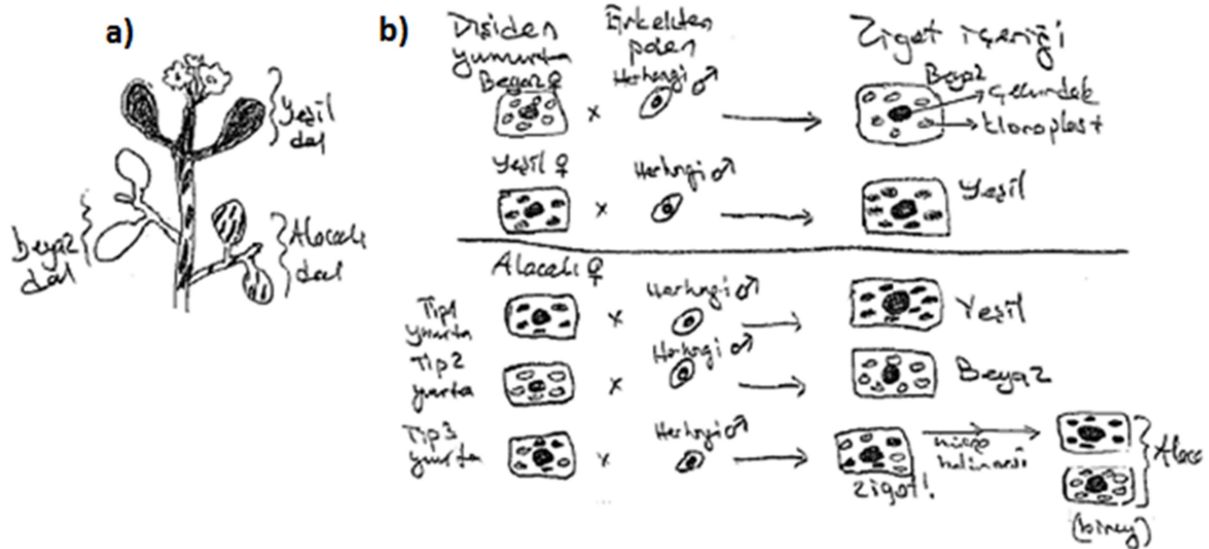 a)
Yeşil
dal
Beyaz
dal
Alacalı
dal
b)
Dişiden
yumurta
Erkekten
polen
Zigot içeriği
Beyaz ♀
x
Herhangi ♂
Beyaz
çekirdek
kloroplast
Yeşil ♀
x
Herhangi ♂
Yeşil
Alacalı ♀
Tip1
yumurta
x
Herhangi ♂
Yeşil
Tip 2
yumurta
x
Herhangi ♂
Beyaz
Tip 3
yumurta
x
Herhangi ♂
zigot!
Alaca
(birey)